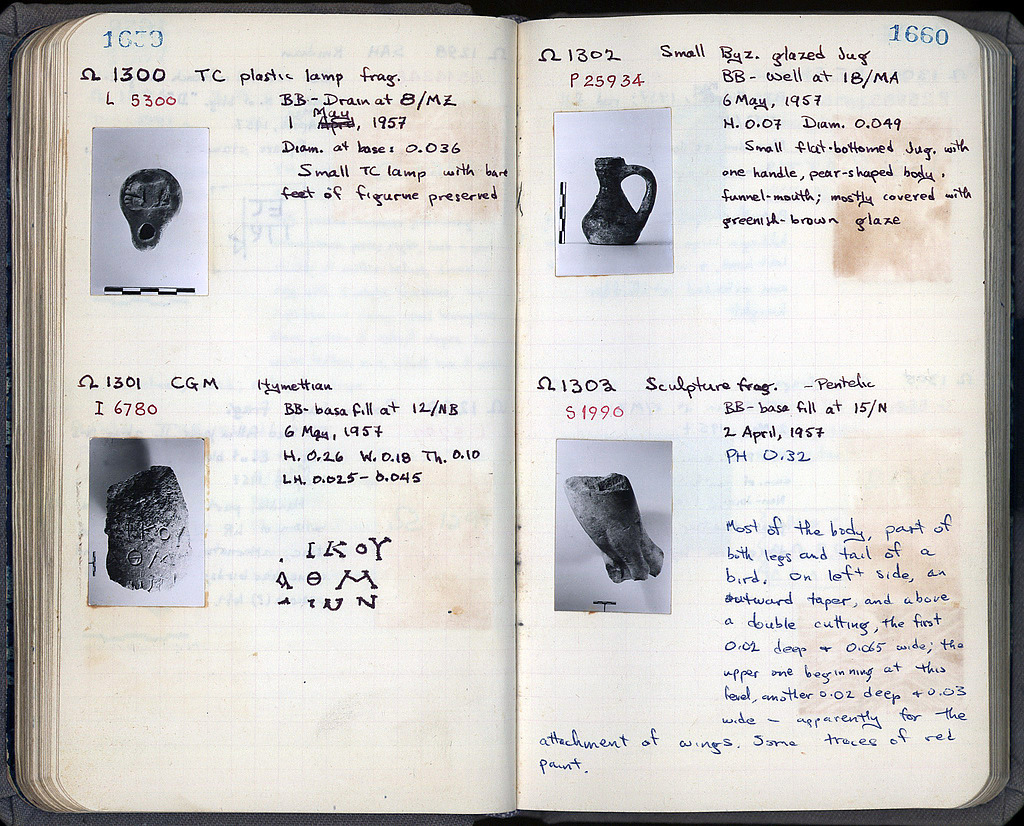 1659
Ω 1300 TC plastic lamp frag.
L 5300
BB - Drain at 8/MZ
1 May, 1957
Diam. at base: 0.036
Small TC lamp with bare
feet of figurine preserved
Ω 1301 CGM Hymettian
I 6780
BB - basa fill at 12/NB
6 May, 1957
H. 0.26 W. 0.18 Th. 0.10
LH. 0.025 - 0.045
. Ι Κ Ο Υ
Α Θ Μ
Ν
1660
Ω 1302 Small Byz. glazed Jug
P 25934
BB - Well at 18/MA
6 May, 1957
H. 0.07 Diam. 0.049
Small flat-bottomed Jug. with
one handle, pear-shaped body,
funnel-mouth; mostly covered with
greenish-brown glaze
Ω 1303 Sculpture frag. - Pentelic
S 1990
BB - basa fill at 15/N
2 April, 1957
PH 0.32
Most of the body, part of
both legs and tail of a
bird. On left side, an
outward taper, and above
a double cutting, the first
0.02 deep + 0.065 wide; the
upper one beginning at this
level, another 0.02 deep + 0.03
wide - apparently for the
attachment of wings. Some traces of red
paint.